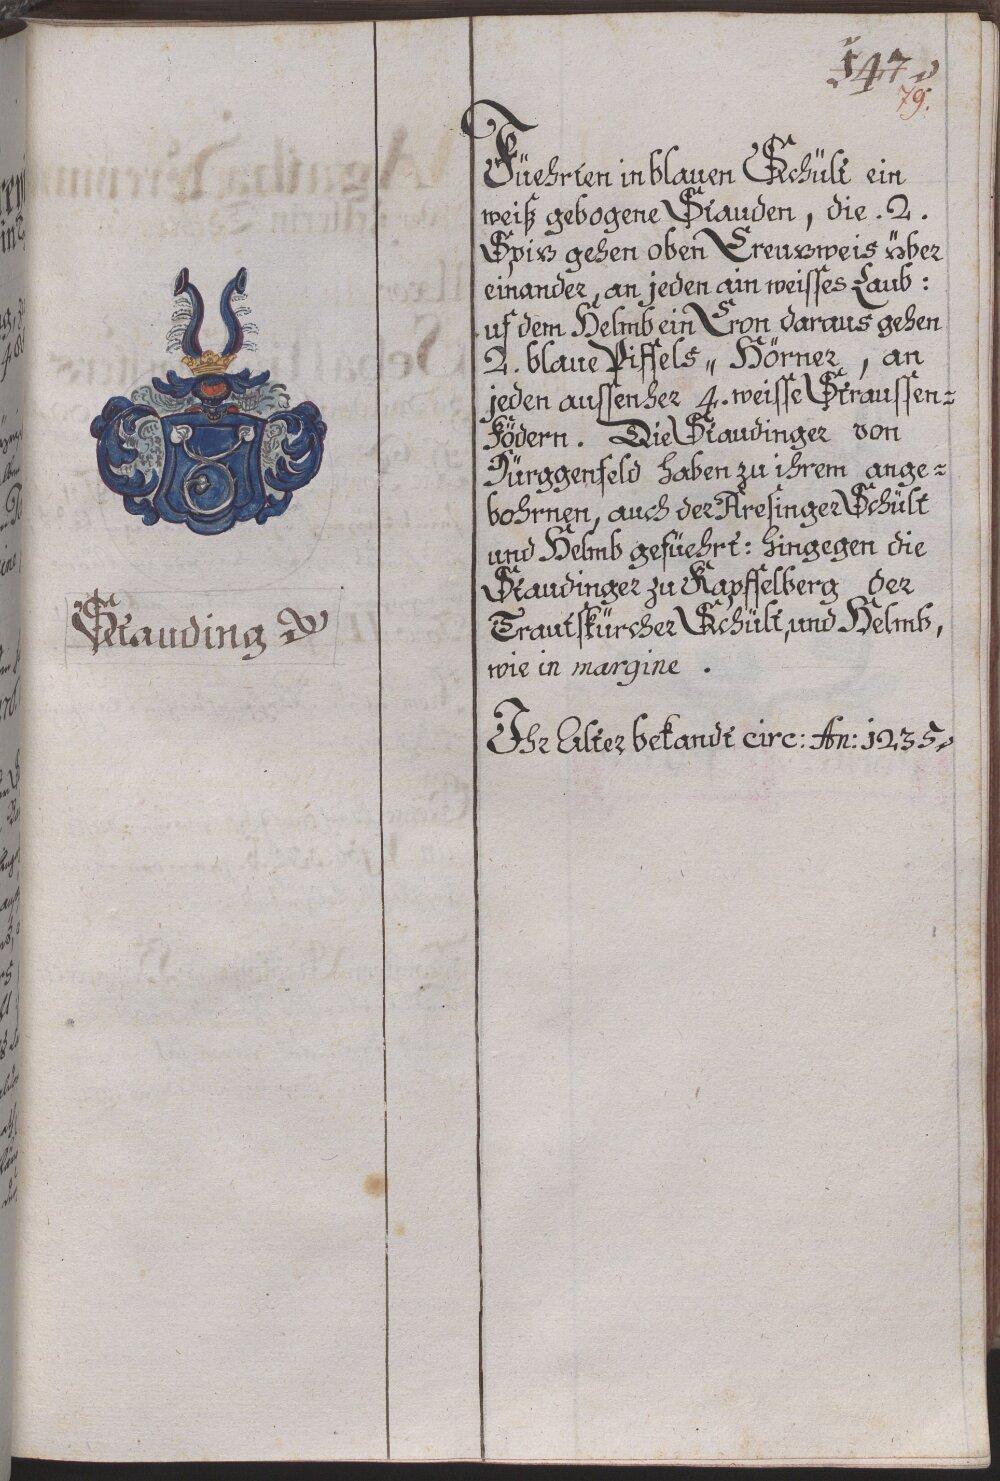 147
79.
Füehrten in blauen Schült ein
weiß gebogene Stauden, die .2.
Spiz gehen oben Creuzweis über
einander, an jeden ain weisses Laub:
uf dem Helmb ein Cron daraus gehen
2. blaue Piffels„ Hörner, an
jeden aussenher 4. weisse Straussen=
födern. Die Staudinger von
Türggenfeld haben zu ihrem ange=
bohrnen, auch der Aresinger Schült
und Helmb gefüehrt: hingegen die
Staudinger zu Kapffelberg der
Trautskürcher Schült, und Helmb,
wie in margine .
Ihr Alter bekandt circ: An: 1235
Stauding